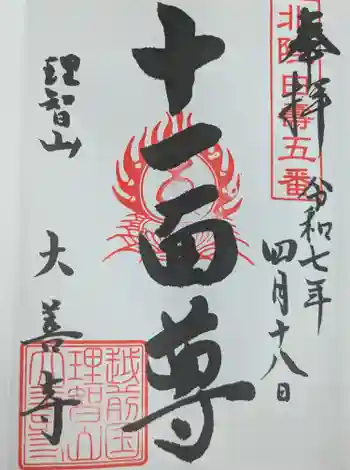 奉拝
令和七年
四月十八日
十一面尊
理智山
大善寺
越前国
理智山
大善寺